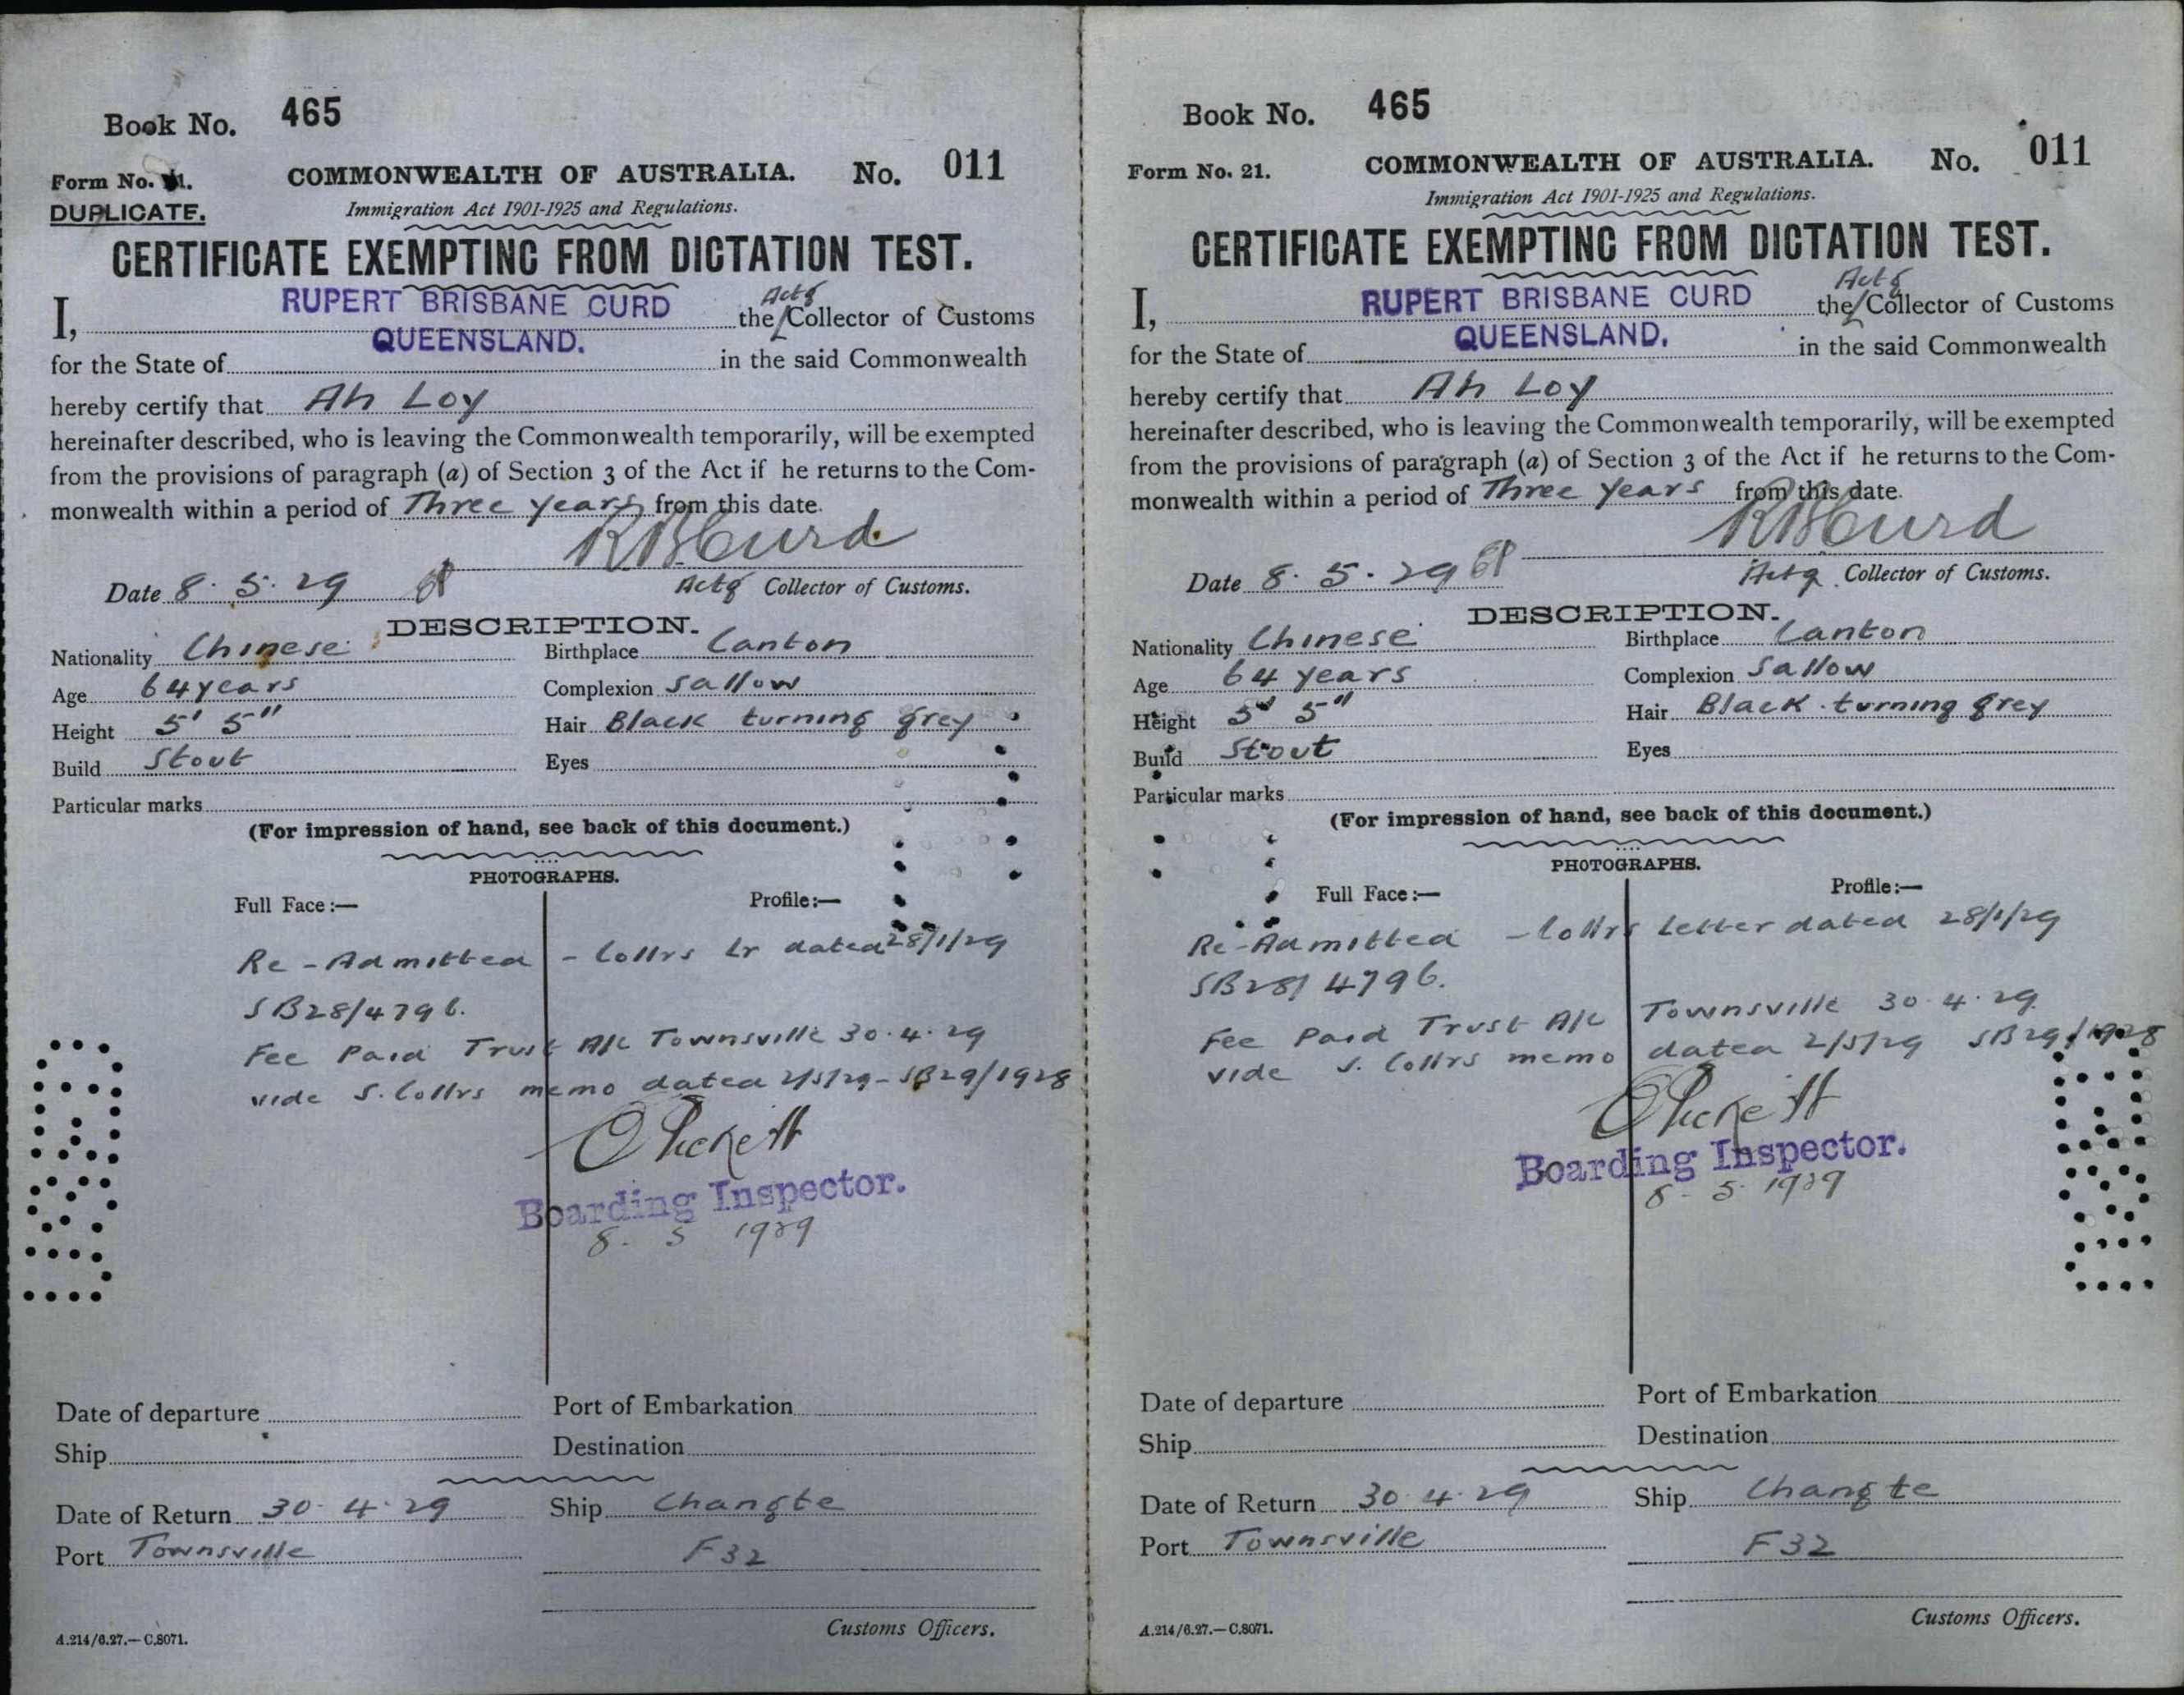 Book No. 465
Form No. 21.
DUPLICATE.
COMMONWEALTH OF AUSTRALIA. No. 011
Immigration Act 1901-1925 and Regulations.
CERTIFICATE EXEMPTING FROM DICTATION TEST.
I, RUPERT BRISBANE CURD the Actg Collector of Customs
for the State of QUEENSLAND. in the said Commonwealth
hereby certify that Ah Loy
hereinafter described, who is leaving the Commonwealth temporarily, will be exempted
from the provisions of paragraph (a) of Section 3 of the Act if he returns to the Com-
monwealth within a period of Three years from this date.
RBCurd
Date 8.5.29 Actg Collector of Customs.
DESCRIPTION.
Nationality Chinese Birthplace Canton
Age 64 years Complexion Sallow
Height 5' 5" Hair Black turning grey
Build Stout Eyes
Particular marks
(For impression of hand, see back of this document.)
PHOTOGRAPHS.
Full Face:— Profile:—
Re-Admitted - Collrs Lr dated 28/1/29
SB28/4796.
Fee Paid Trust A/c Townsville 30.4.29
vide S. Collrs memo dated 2/5/29 - SB29/1928
Boarding Inspector.
8. 5 1929
Date of departure Port of Embarkation
Ship Destination
Date of Return 30.4.29 Ship Changte
Port Townsville F32
Customs Officers.
A.214/6.27.—C.8071.
Book No. 465
Form No. 21. COMMONWEALTH OF AUSTRALIA. No. 011
Immigration Act 1901-1925 and Regulations.
CERTIFICATE EXEMPTING FROM DICTATION TEST.
I, RUPERT BRISBANE CURD the Actg Collector of Customs
for the State of QUEENSLAND. in the said Commonwealth
hereby certify that Ah Loy
hereinafter described, who is leaving the Commonwealth temporarily, will be exempted
from the provisions of paragraph (a) of Section 3 of the Act if he returns to the Com-
monwealth within a period of Three Years from this date.
RBCurd
Date 8.5.29 Actg Collector of Customs.
DESCRIPTION.
Nationality Chinese Birthplace Canton
Age 64 years Complexion Sallow
Height 5' 5" Hair Black turning grey
Build Stout Eyes
Particular marks
(For impression of hand, see back of this document.)
PHOTOGRAPHS.
Full Face:— Profile:—
Re-Admitted - Collrs Letter dated 28/1/29
SB28/4796.
Fee Paid Trust A/c Townsville 30.4.29
vide S. Collrs memo dated 2/5/29 SB29/1928
Boarding Inspector.
8. 5. 1929
Date of departure Port of Embarkation
Ship Destination
Date of Return 30.4.29 Ship Changte
Port Townsville F32
Customs Officers.
A.214/6.27.—C.8071.